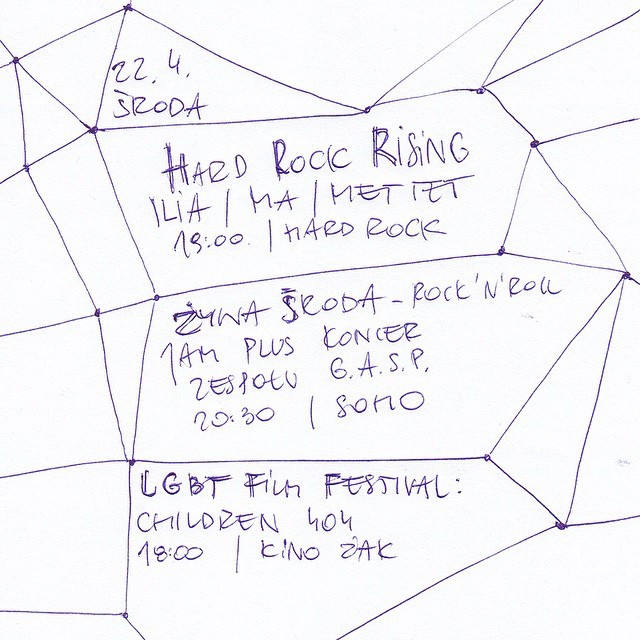 22.4.
ŚRODA
HARD ROCK RISING
ILIA | MA | METTET
19:00 | HARD ROCK
ŻYWA ŚRODA - ROCK'N'ROLL
JAM PLUS KONCER
ZESPOŁU G.A.S.P.
20:30 | SOHO
LGBT FILM FESTIVAL:
CHILDREN 404
18:00 | KINO ŻAK